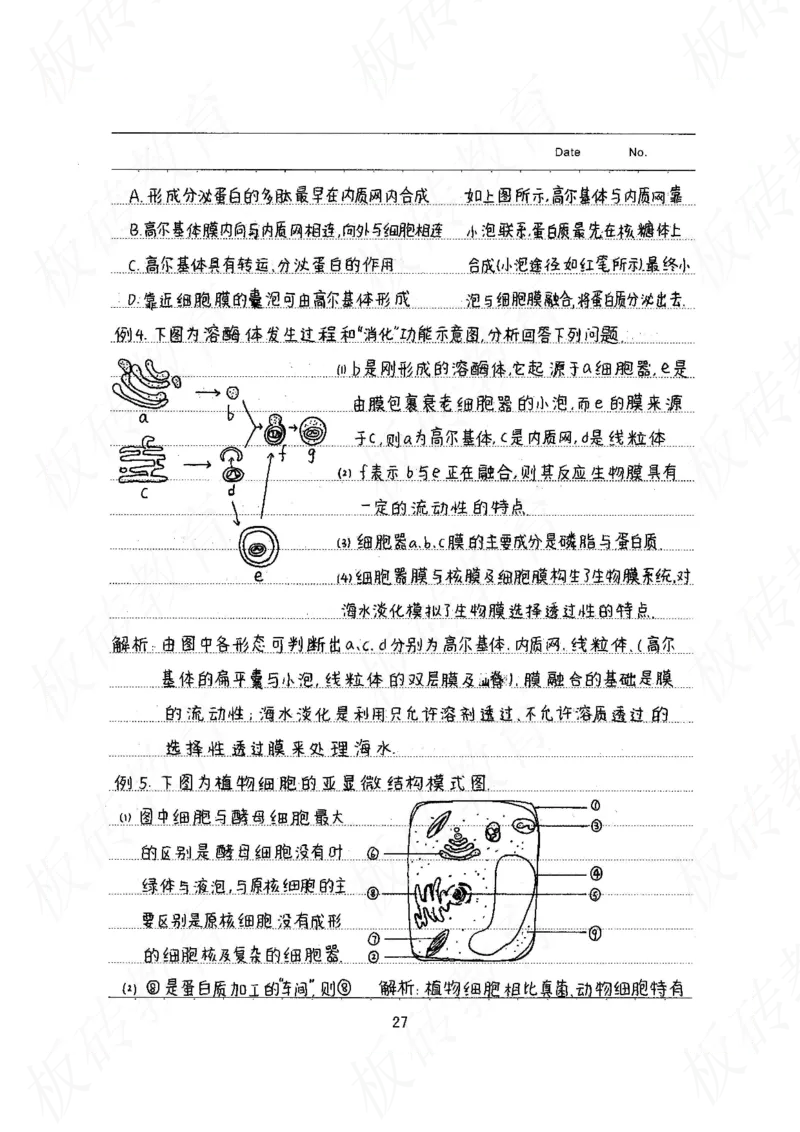 Date No.
A. 形成分泌蛋白的多肽最早在内质网内合成 如上图所示,高尔基体与内质网靠
B. 高尔基体膜内向与内质网相连,向外与细胞相连 小泡联系.蛋白质最先在核糖体上
C. 高尔基体具有转运、分泌蛋白的作用 合成(小泡途径如红笔所示).最终小
D. 靠近细胞膜的囊泡可由高尔基体形成 泡与细胞膜融合,将蛋白质分泌出去.
例4. 下图为溶酶体发生过程和“消化”功能示意图,分析回答下列问题.
(1) b是刚形成的溶酶体,它起源于a细胞器,e是
由膜包裹衰老细胞器的小泡,而e的膜来源
于C,则a为高尔基体,C是内质网,d是线粒体
(2) f表示b与e正在融合,则其反应生物膜具有
一定的流动性的特点
(3) 细胞器a.b.c膜的主要成分是磷脂与蛋白质.
(4) 细胞器膜与核膜及细胞膜构生了生物膜系统,对
海水淡化模拟了生物膜选择透过性的特点.
a
b
c
d
e
f
g
解析: 由图中各形态可判断出a、c、d分别为高尔基体.内质网.线粒体、(高尔
基体的扁平囊与小泡,线粒体的双层膜及嵴),膜融合的基础是膜
的流动性;海水淡化是利用只允许溶剂透过、不允许溶质透过的
选择性透过膜来处理海水.
例5. 下图为植物细胞的亚显微结构模式图.
(1) 图中细胞与酵母细胞最大
的区别是酵母细胞没有叶
绿体与液泡,与原核细胞的主
要区别是原核细胞没有成形
的细胞核及复杂的细胞器.
①
③
⑥
④
⑧
⑤
⑦
⑨
②
(2) ⑧是蛋白质加工的“车间”,则⑧ 解析: 植物细胞相比真菌、动物细胞特有
27
板砖教育
板砖教育
板砖教育
板砖教育
板砖教育
板砖教育